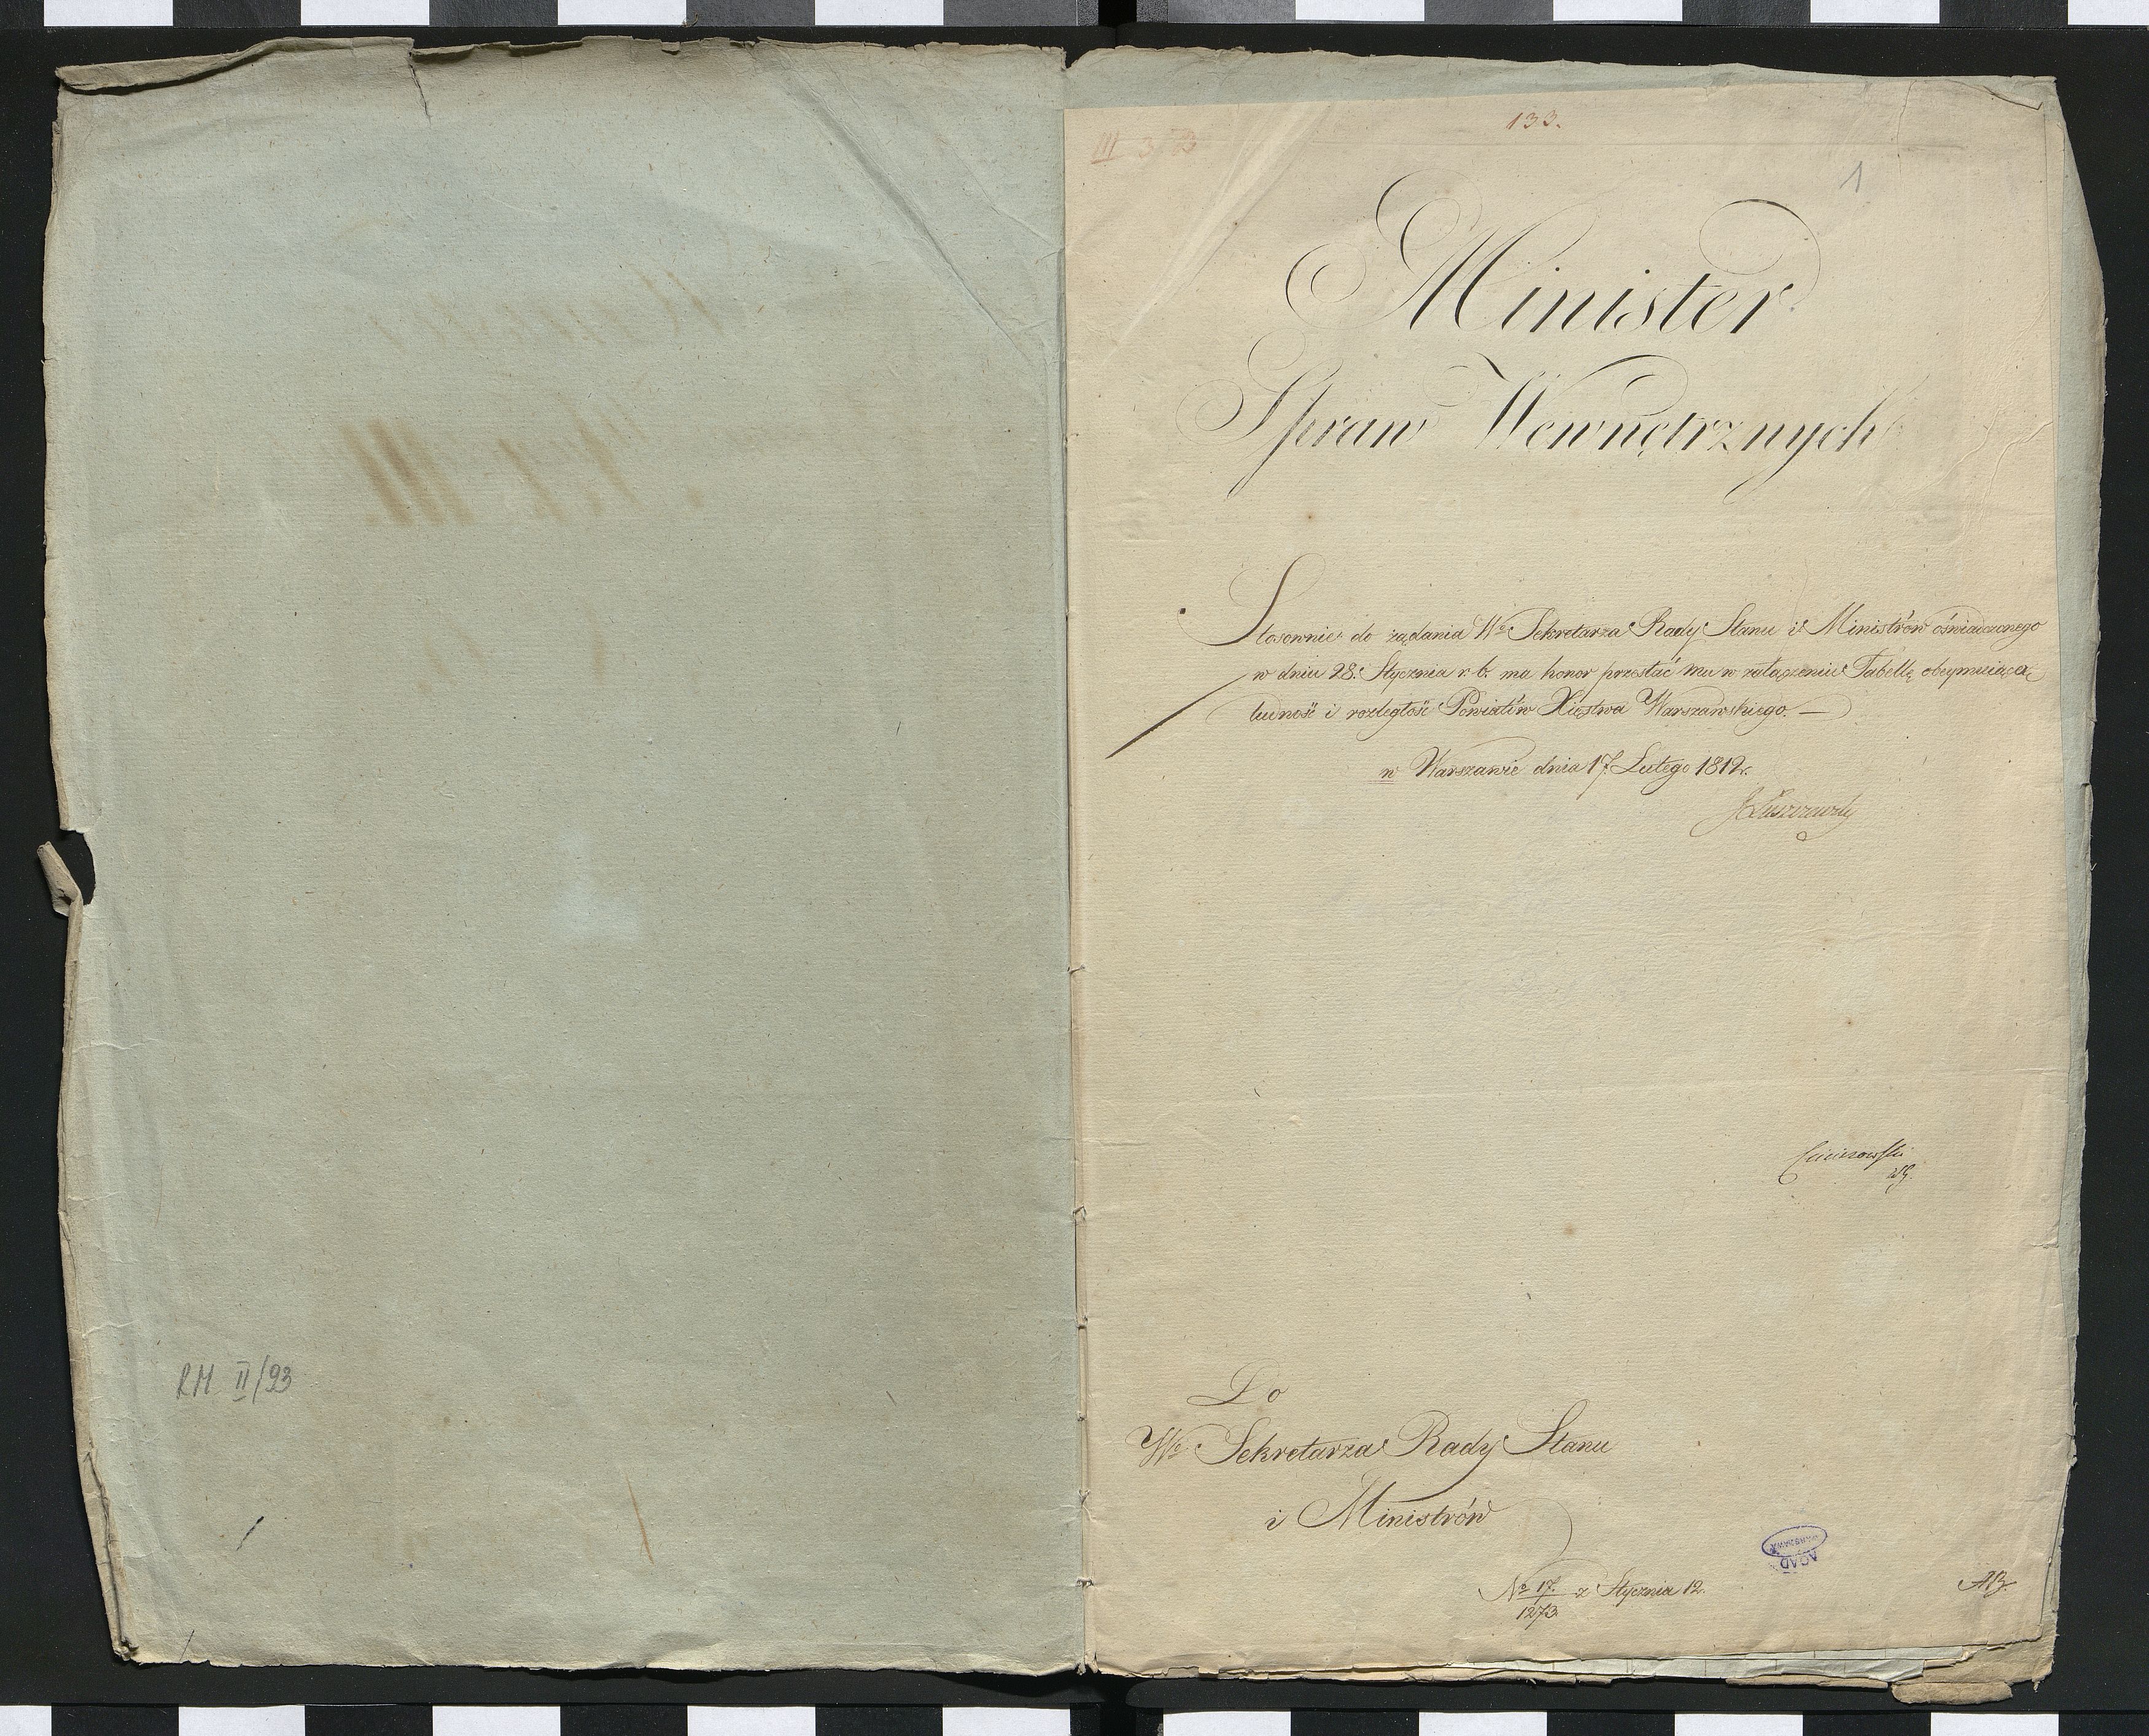 RM II/93
III 3/93
133.
1
Minister
Spraw Wewnętrznych
Stosownie do żądania We Sekretarza Rady Stanu i Ministrów oświadczonego
w dniu 28. Stycznia r. b. ma honor przesłać mu w załączeniu Tabellę obeymuiącą
ludność i rozległość Powiatów Xięstwa Warszawskiego.—
w Warszawie dnia 17. Lutego 1812 r.
JŁuszczewsky
Do
We Sekretarza Rady Stanu
i Ministrów
No 17. z Stycznia 12.
1273
AGAD
WARSZAWA
AB.